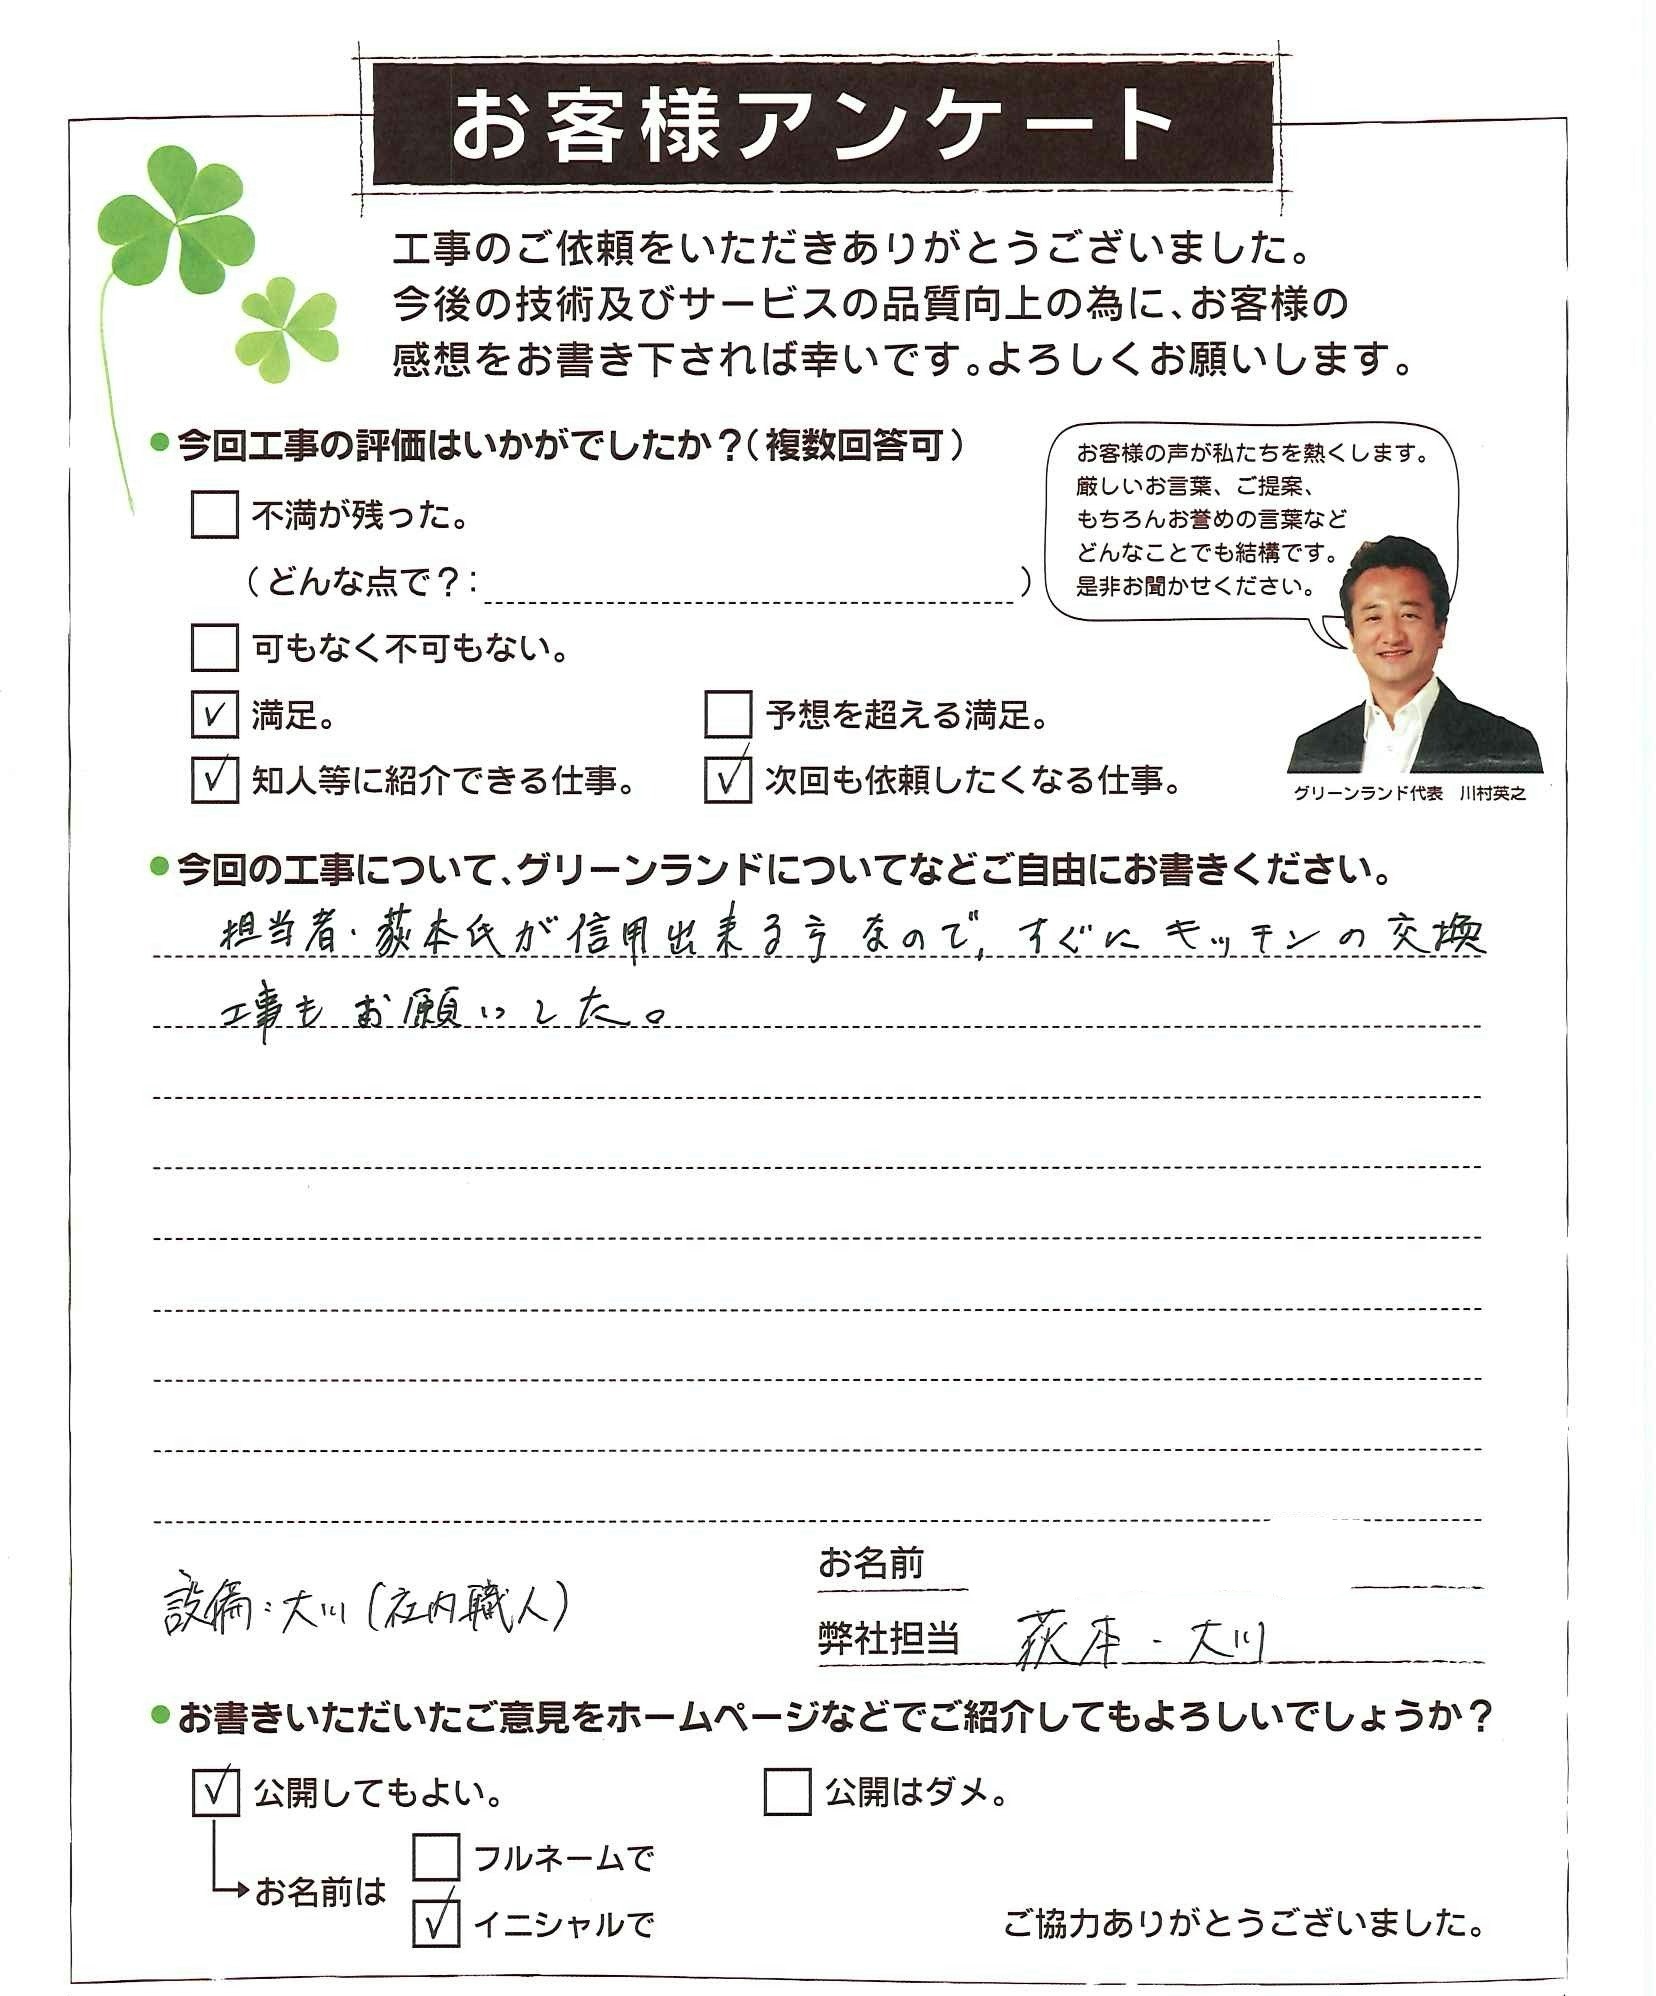 お客様アンケート
工事のご依頼をいただきありがとうございました。
今後の技術及びサービスの品質向上の為に、お客様の
感想をお書き下されば幸いです。よろしくお願いします。
●今回工事の評価はいかがでしたか？（複数回答可）
不満が残った。
（どんな点で？：　）
可もなく不可もない。
✓ 満足。
予想を超える満足。
✓ 知人等に紹介できる仕事。
✓ 次回も依頼したくなる仕事。
お客様の声が私たちを熱くします。
厳しいお言葉、ご提案、
もちろんお誉めの言葉など
どんなことでも結構です。
是非お聞かせください。
グリーンランド代表　川村英之
●今回の工事について、グリーンランドについてなどご自由にお書きください。
担当者・荻本氏が信用出来る方なので、すぐにキッチンの交換
工事もお願いした。
設備：大川（社内職人）
お名前
弊社担当　荻本・大川
●お書きいただいたご意見をホームページなどでご紹介してもよろしいでしょうか？
✓ 公開してもよい。
公開はダメ。
お名前は
フルネームで
✓ イニシャルで
ご協力ありがとうございました。